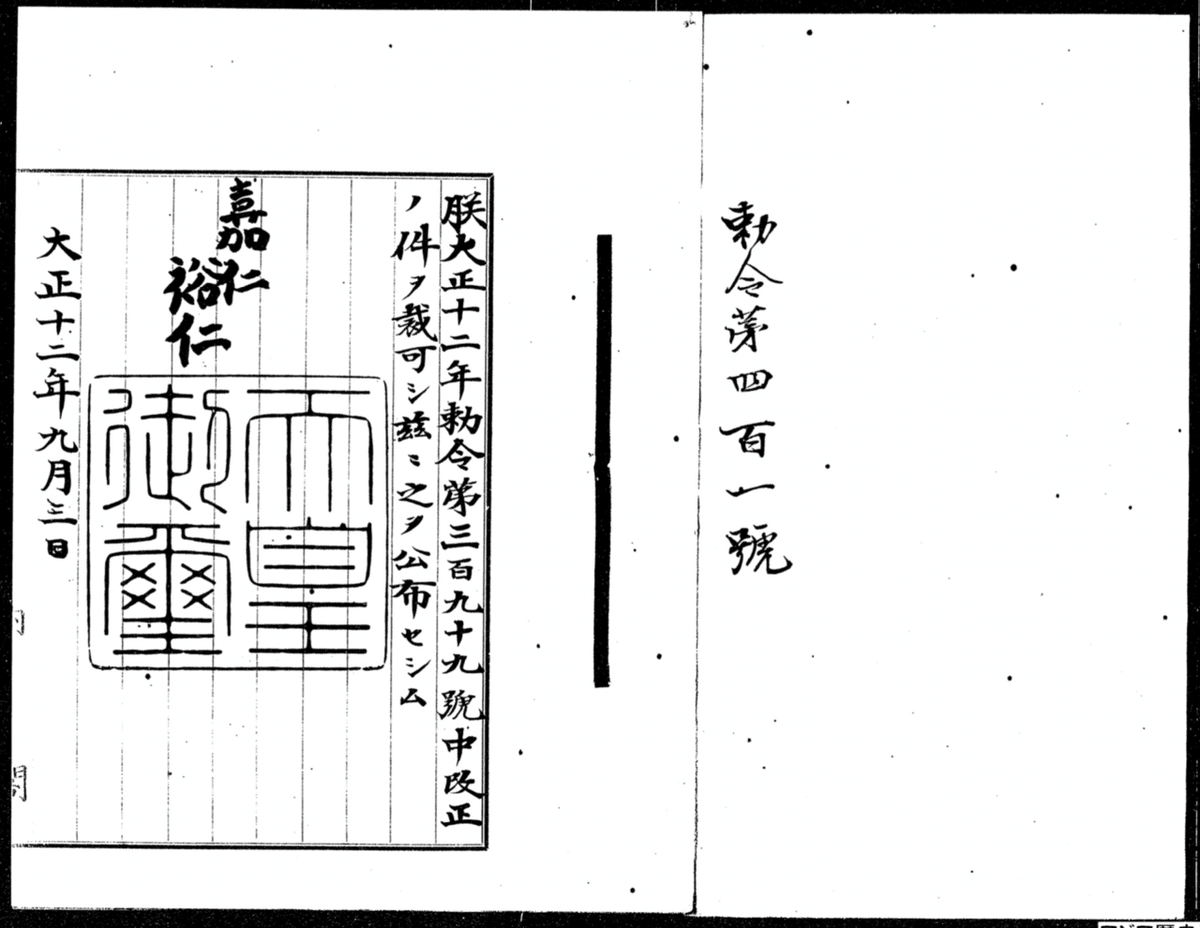 勅令第四百一號
朕大正十二年勅令第三百九十九號中改正
ノ件ヲ裁可シ玆ニ之ヲ公布セシム
嘉仁
裕仁
天皇
御璽
大正十二年九月三日